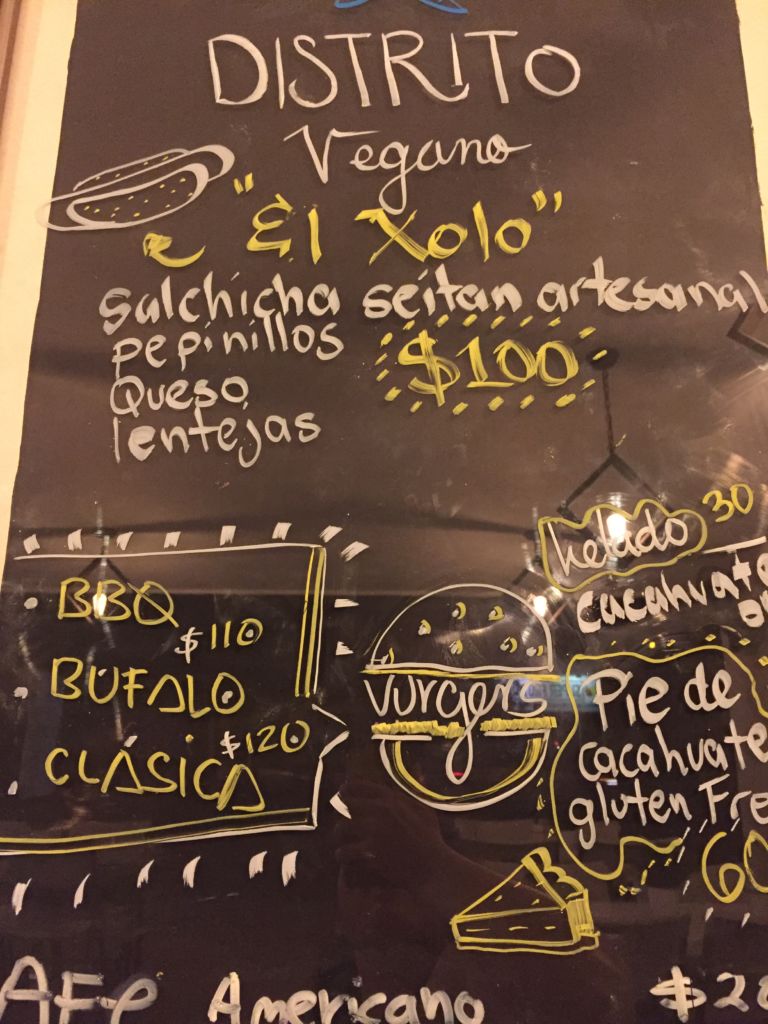 DISTRITO
Vegano
"El Xolo"
salchicha seitan artesanal
pepinillos
$100
Queso
lentejas
BBQ
$110
BUFALO
$120
CLÁSICA
vurgers
helado 30
Pie de
cacahuate
gluten Fre
60
AFe Americano $28